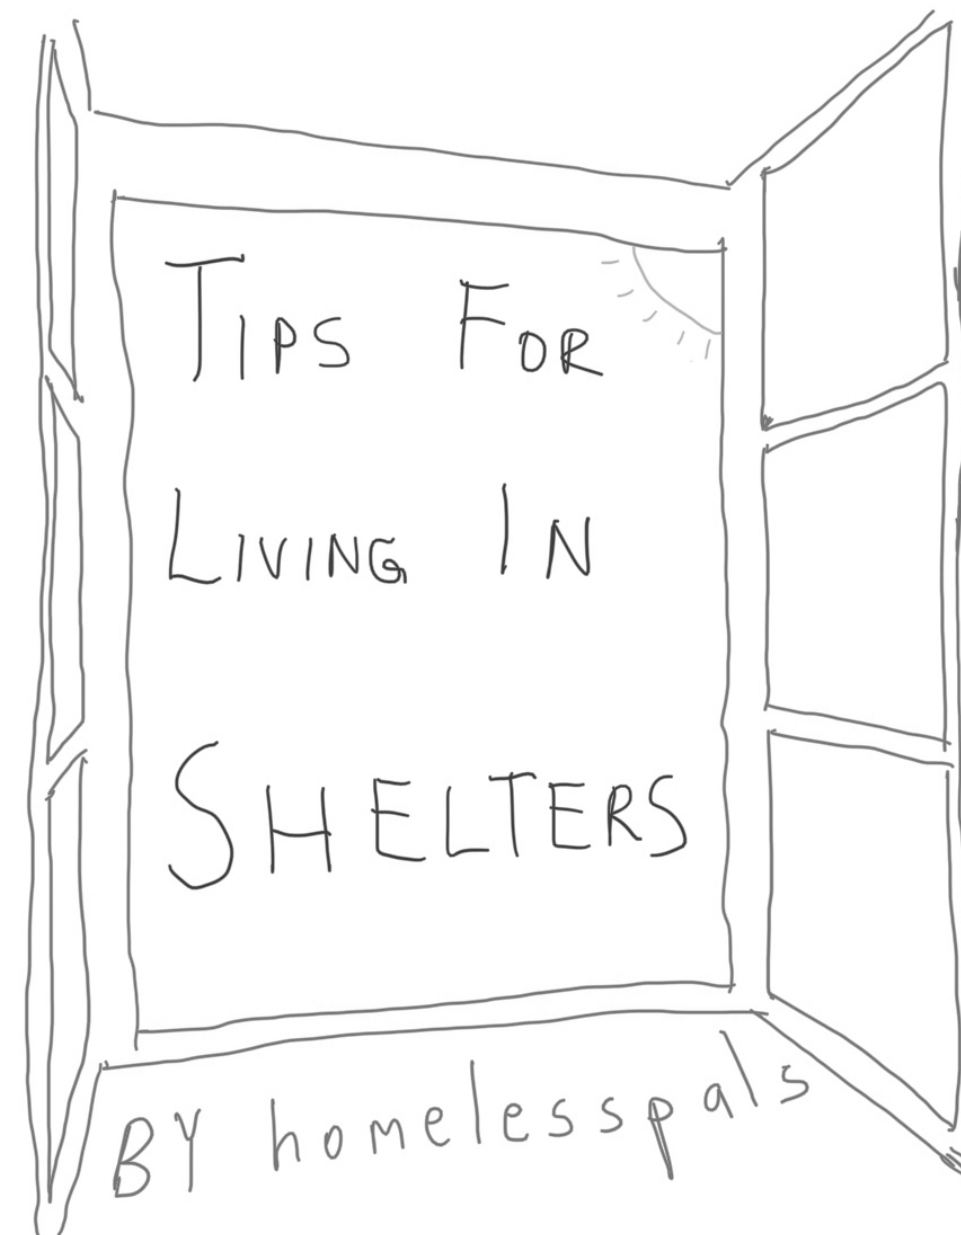 TIPS FOR
LIVING IN
SHELTERS
BY homelesspals